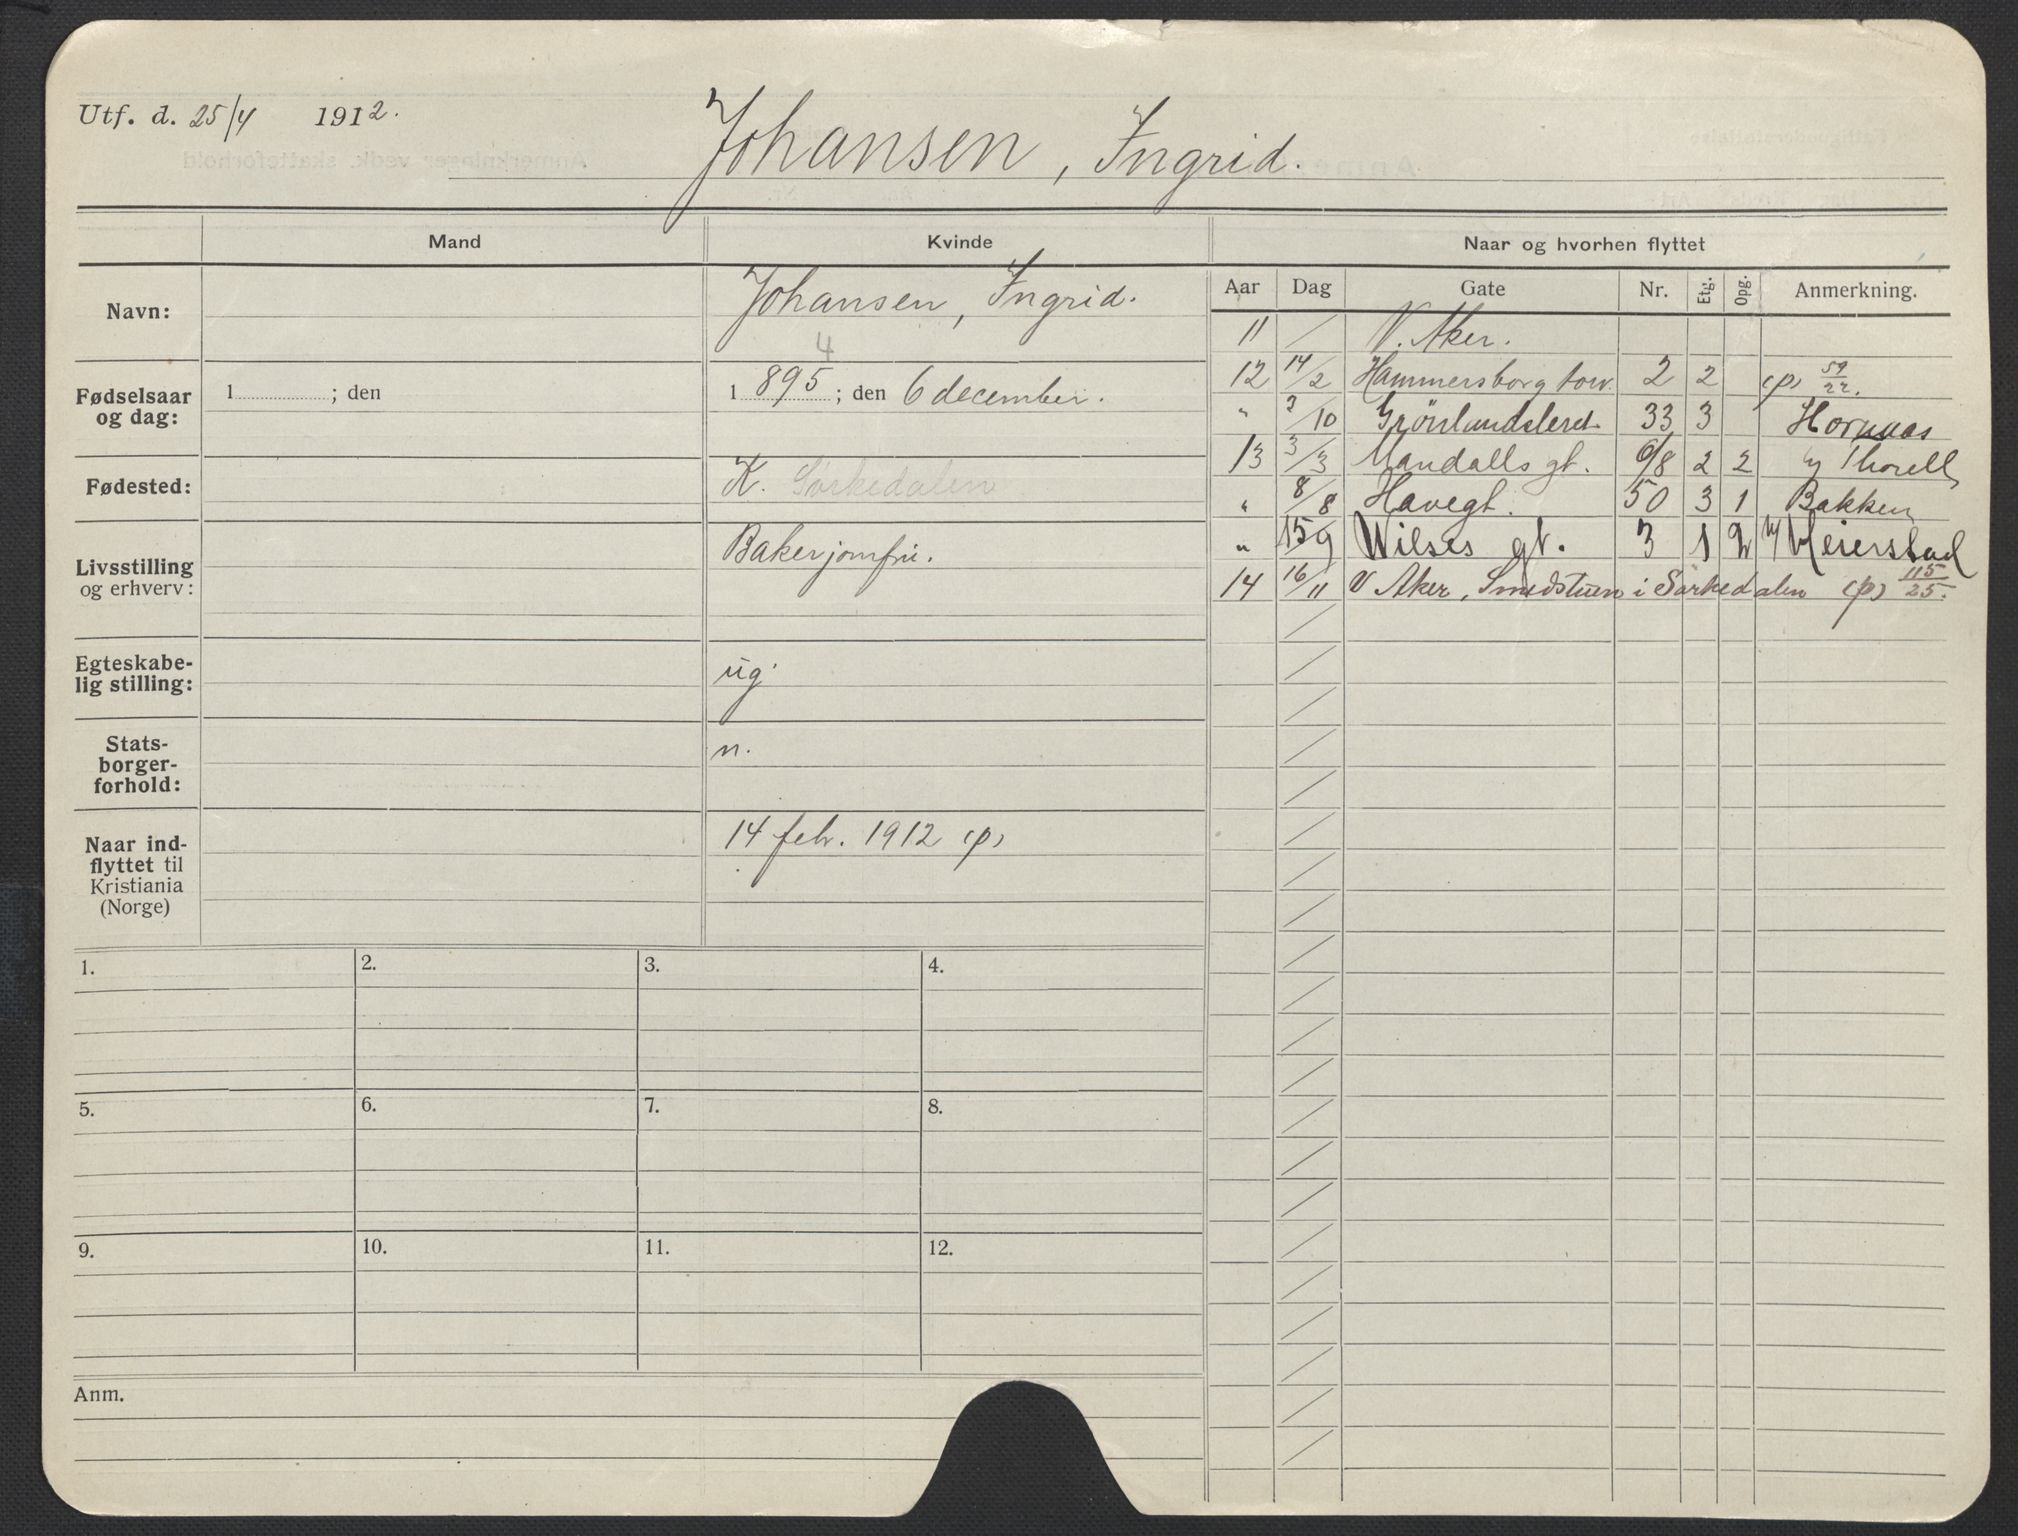 Utf. d. 25/4 1912.
Johansen, Ingrid.
Mand
Kvinde
Naar og hvorhen flyttet
Navn:
Johansen, Ingrid.
Fødselsaar og dag:
1 ; den
4
1 895 ; den 6 december.
Fødested:
K. Sørkedalen
Livsstilling og erhverv:
Bakerjomfru.
Egteskabe-
lig stilling:
ug.
Stats-
borger-
forhold:
n.
Naar ind-
flyttet til
Kristiania
(Norge)
14 febr. 1912 (p)
Aar Dag Gate Nr. Etg. Opg. Anmerkning.
11 / V. Aker.
12 14/2 Hammersborg torv. 2 2 (p) 59/22.
" 2/10 Grönlandsleret 33 3 Hornnæs
13 3/3 Mandalls gt. 6/8 2 2 Thorell
" 8/8 Havegt. 50 3 1 Bakken
" 15/9 Wilses gt. 3 1 2 Meierstad
14 16/11 V Aker, Smedstuen i Sørkedalen (p) 115/25.
1. 2. 3. 4.
5. 6. 7. 8.
9. 10. 11. 12.
Anm.